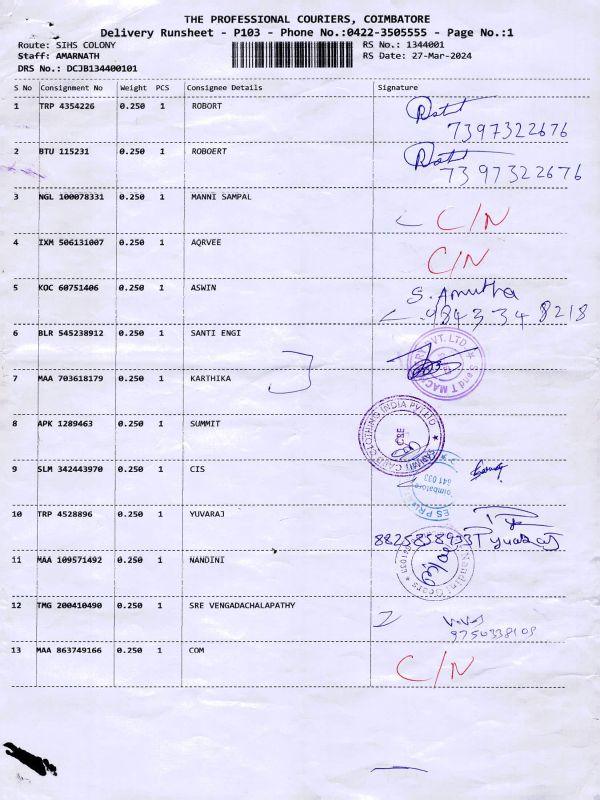 THE PROFESSIONAL COURIERS, COIMBATORE
Delivery Runsheet - P103 - Phone No.:0422-3505555 - Page No.:1
Route: SIHS COLONY
RS No.: 1344001
Staff: AMARNATH
RS Date: 27-Mar-2024
DRS No.: DCJB134400101
S No Consignment No Weight PCS Consignee Details Signature
1 TRP 4354226 0.250 1 ROBORT
7397322676
2 BTU 115231 0.250 1 ROBOERT
7397322676
3 NGL 100078331 0.250 1 MANNI SAMPAL C/N
4 IXM 506131007 0.250 1 AQRVEE C/N
5 KOC 60751406 0.250 1 ASWIN S. Amutha
9843 34 8218
6 BLR 545238912 0.250 1 SANTI ENGI
PVT. LTD
7 MAA 703618179 0.250 1 KARTHIKA
8 APK 1289463 0.250 1 SUMMIT
CLOTHING INDIA PVT LTD
9 SLM 342443970 0.250 1 CIS
Coimbatore
641 033
10 TRP 4528896 0.250 1 YUVARAJ
8825858933
11 MAA 109571492 0.250 1 NANDINI
Nandini Gears
12 TMG 200410490 0.250 1 SRE VENGADACHALAPATHY
9750338109
13 MAA 863749166 0.250 1 COM C/N